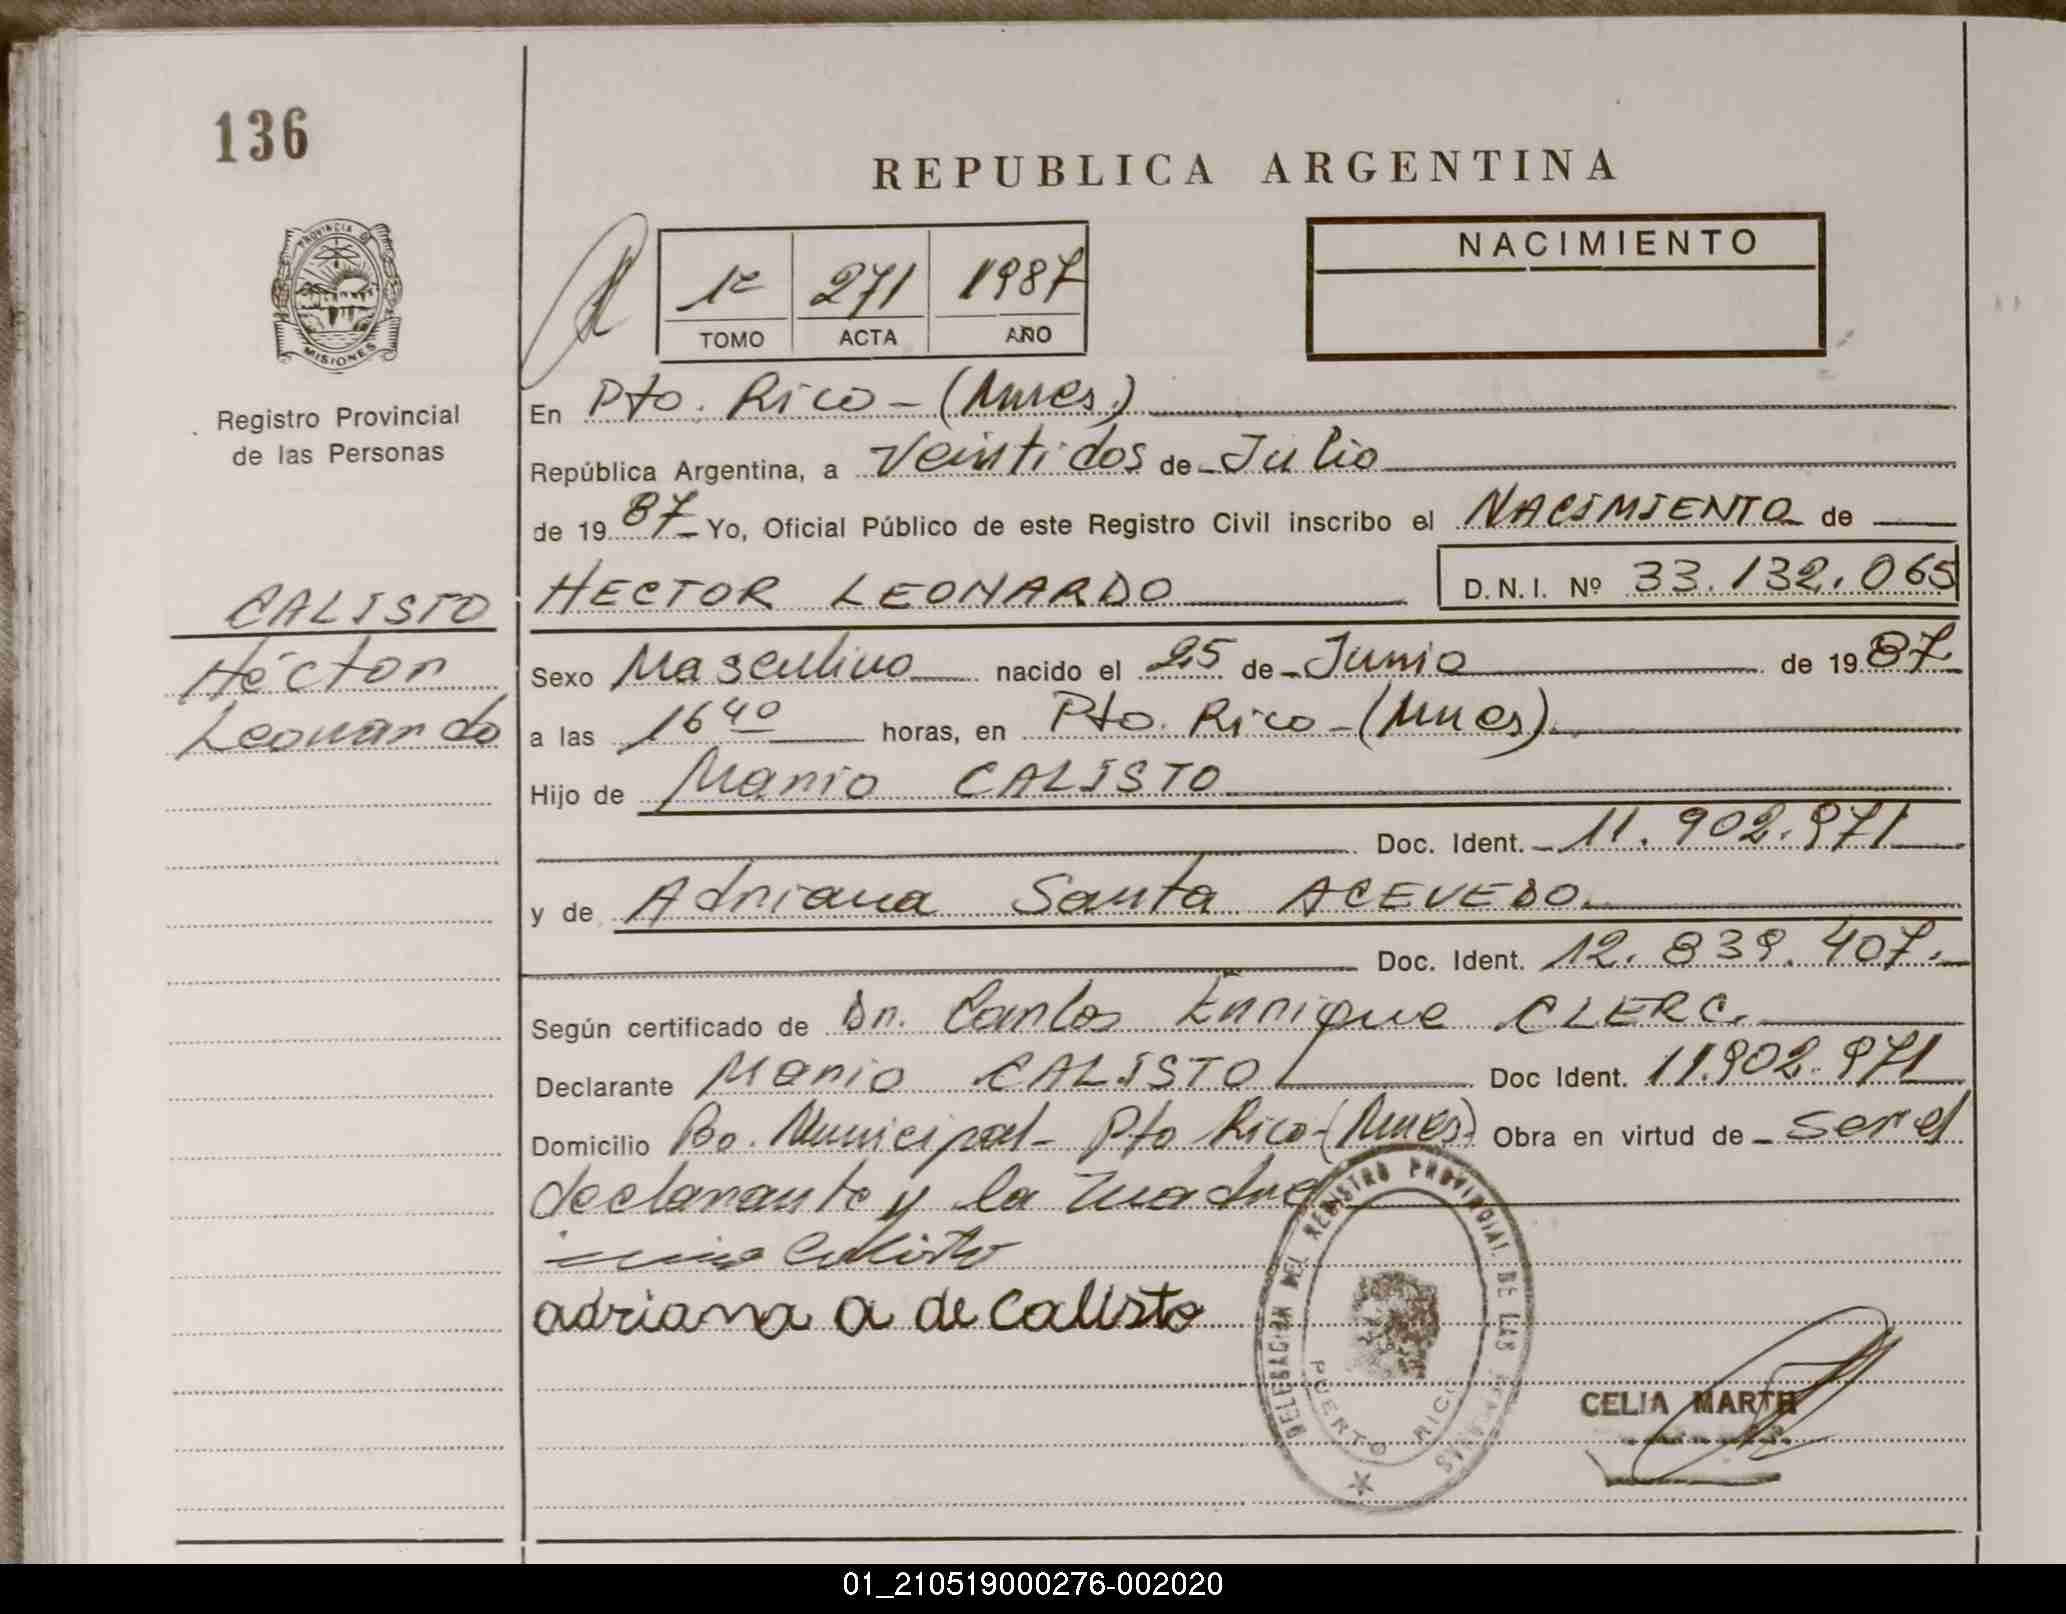 136
REPUBLICA ARGENTINA
PROVINCIA DE
MISIONES
Registro Provincial
de las Personas
1º 271 1987
TOMO ACTA AÑO
NACIMIENTO
En Pto. Rico - (Mnes.)
República Argentina, a Veintidos de Julio
de 19 87 Yo, Oficial Público de este Registro Civil inscribo el NACIMIENTO de
HECTOR LEONARDO D.N.I. Nº 33.132.065
CALISTO
Héctor
Leonardo
Sexo Masculino nacido el 25 de Junio de 19 87
a las 16 40 horas, en Pto. Rico - (Mnes).
Hijo de Mario CALISTO
Doc. Ident. 11.902.971
y de Adriana Santa ACEVEDO.
Doc. Ident. 12.839.407.
Según certificado de Dr. Carlos Enrique CLERC.
Declarante Mario CALISTO Doc Ident. 11.902.971
Domicilio Bo. Municipal - Pto Rico - (Mnes) Obra en virtud de ser el
declarante y la madre
Calisto
adriana a de Calisto
DELEGACION DEL REGISTRO PROVINCIAL DE LAS PERSONAS
PUERTO RICO
CELIA MARTH
01_210519000276-002020